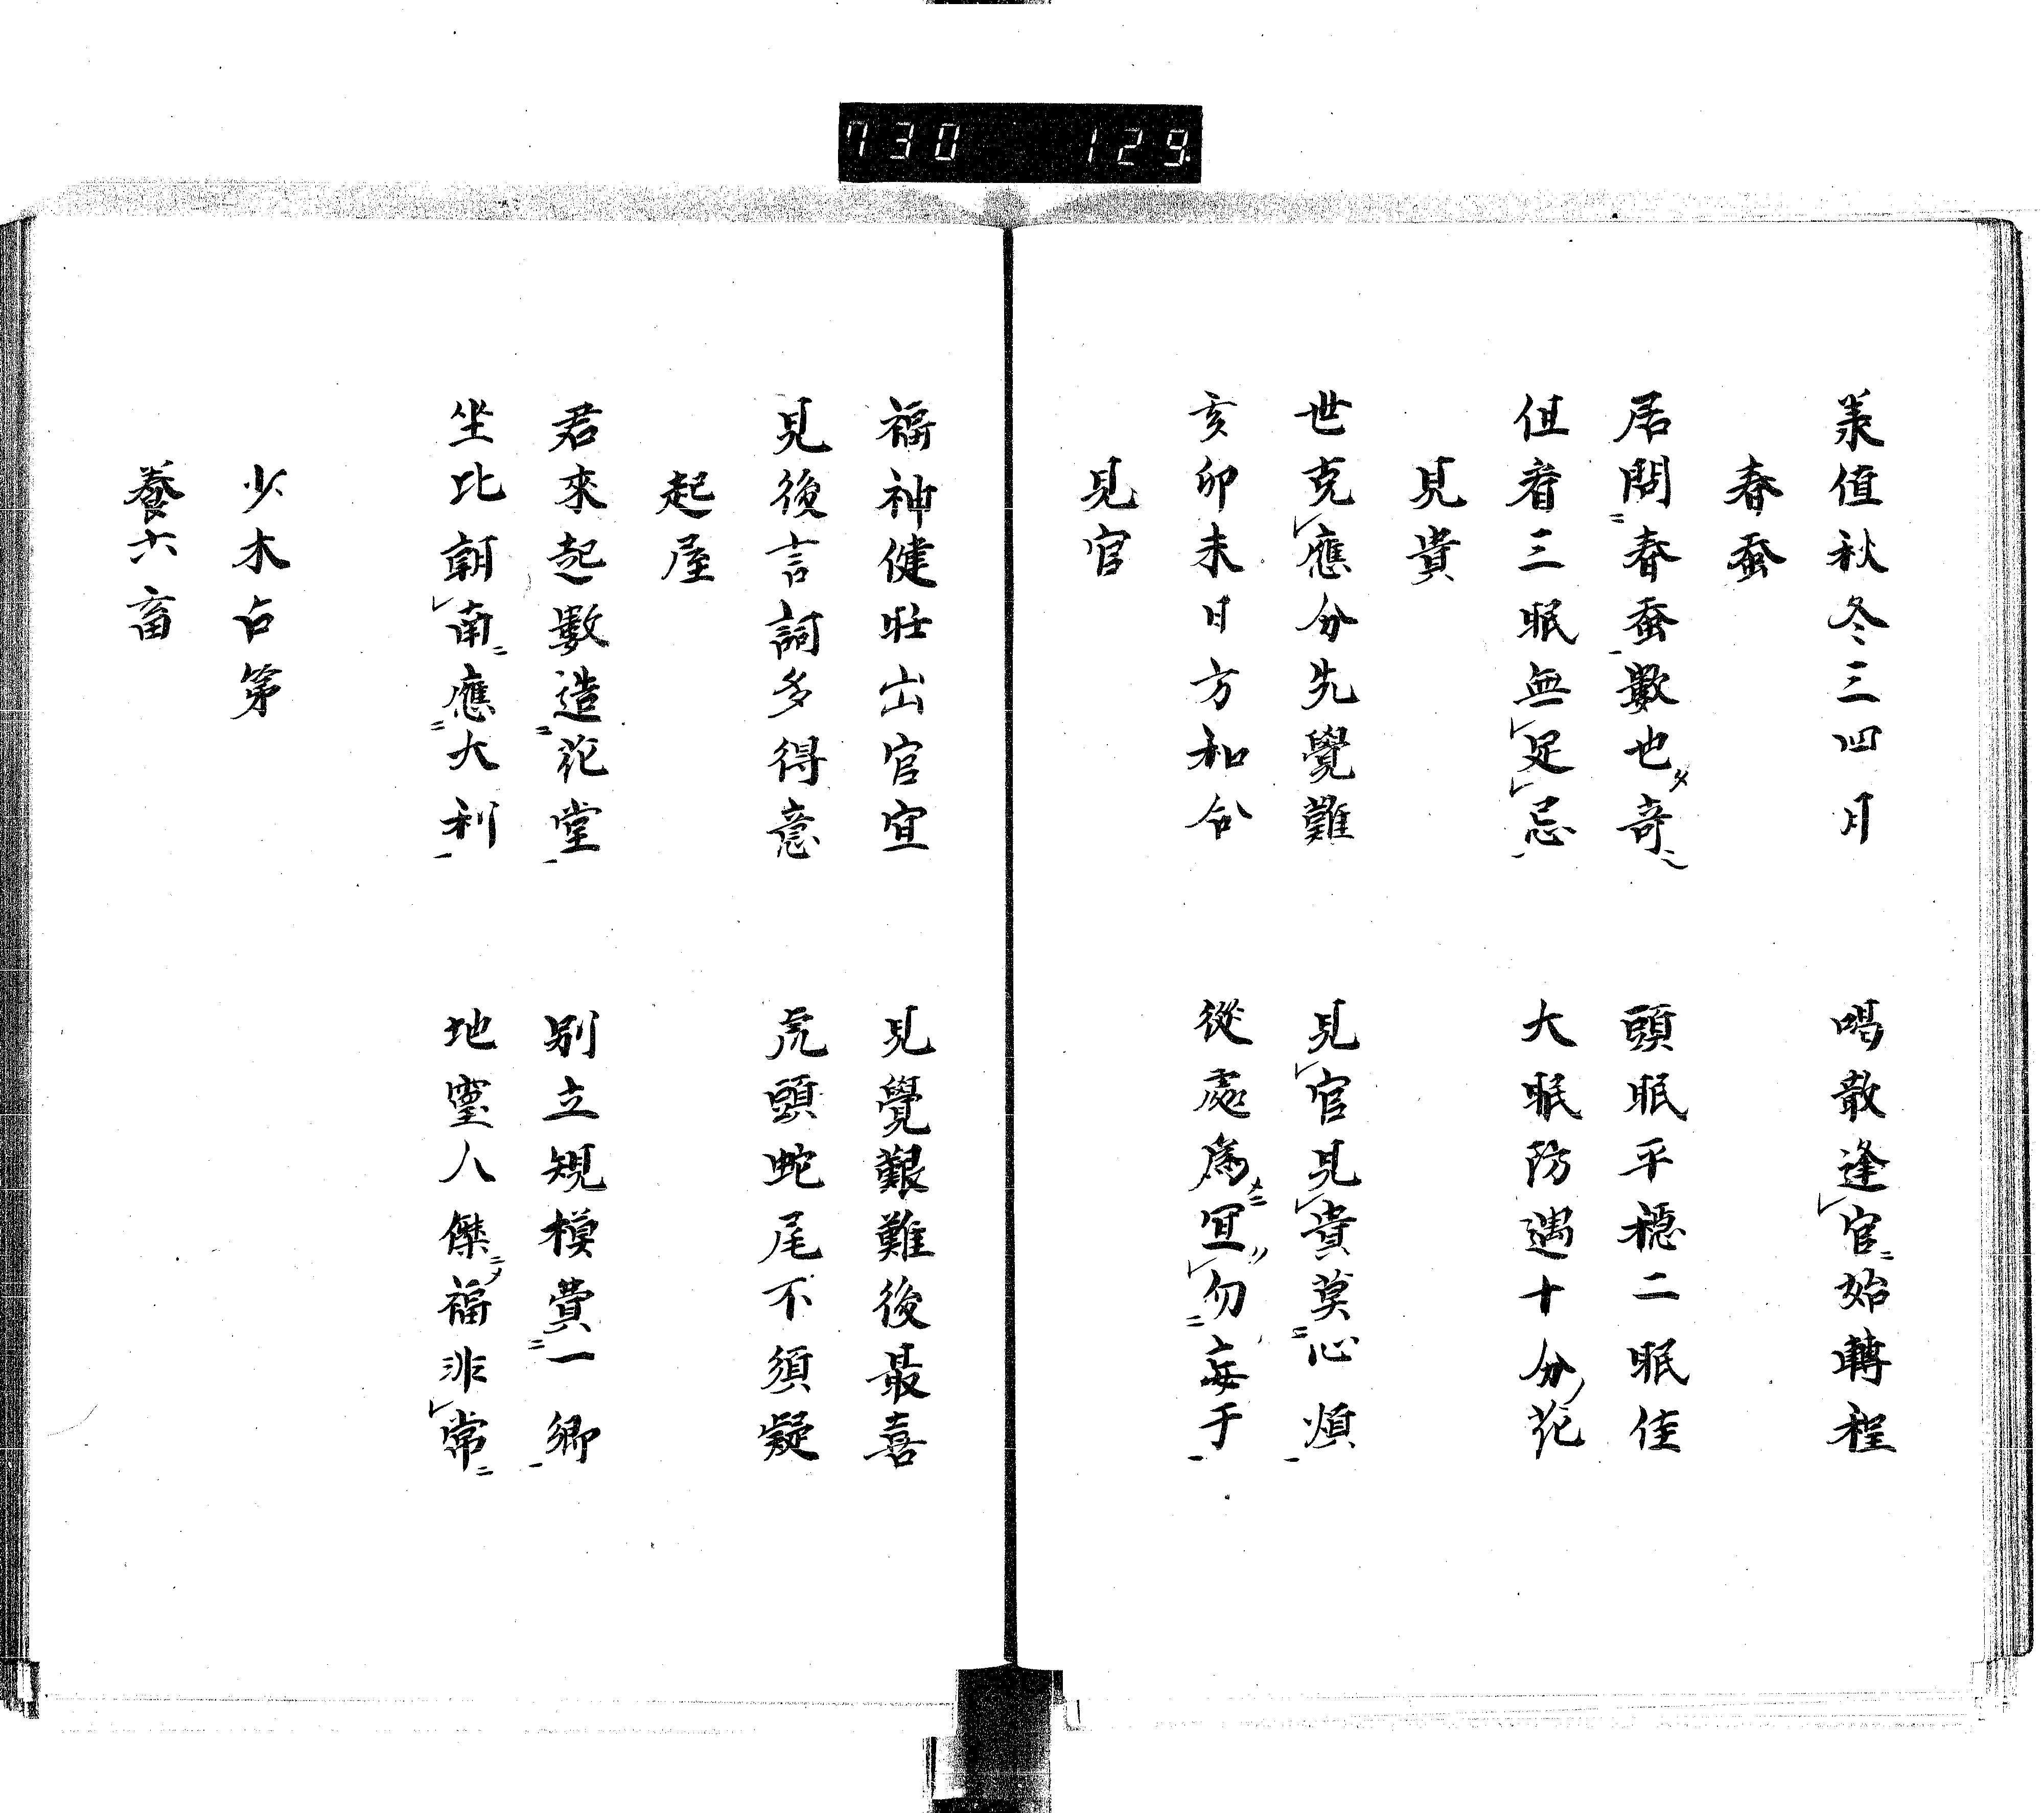 730 129
羕值秋冬三四月 喝散逢官始轉程
春蚕
居問春蚕數也奇 頭眠平穩二眠佳
但看三眠無足忌 大眠防遇十分花
見貴
世克應分先覺難 見官見貴莫心煩
亥卯未日方和合 從處為宜勿妄于
見官
福神健壯出官宜 見覺艱難後最喜
見後言詞多得意 虎頭蛇尾不須疑
起屋
君來起數造花堂 別立規模費一鄉
坐比朝南應大利 地靈人傑福非常
少木占第
養六畜